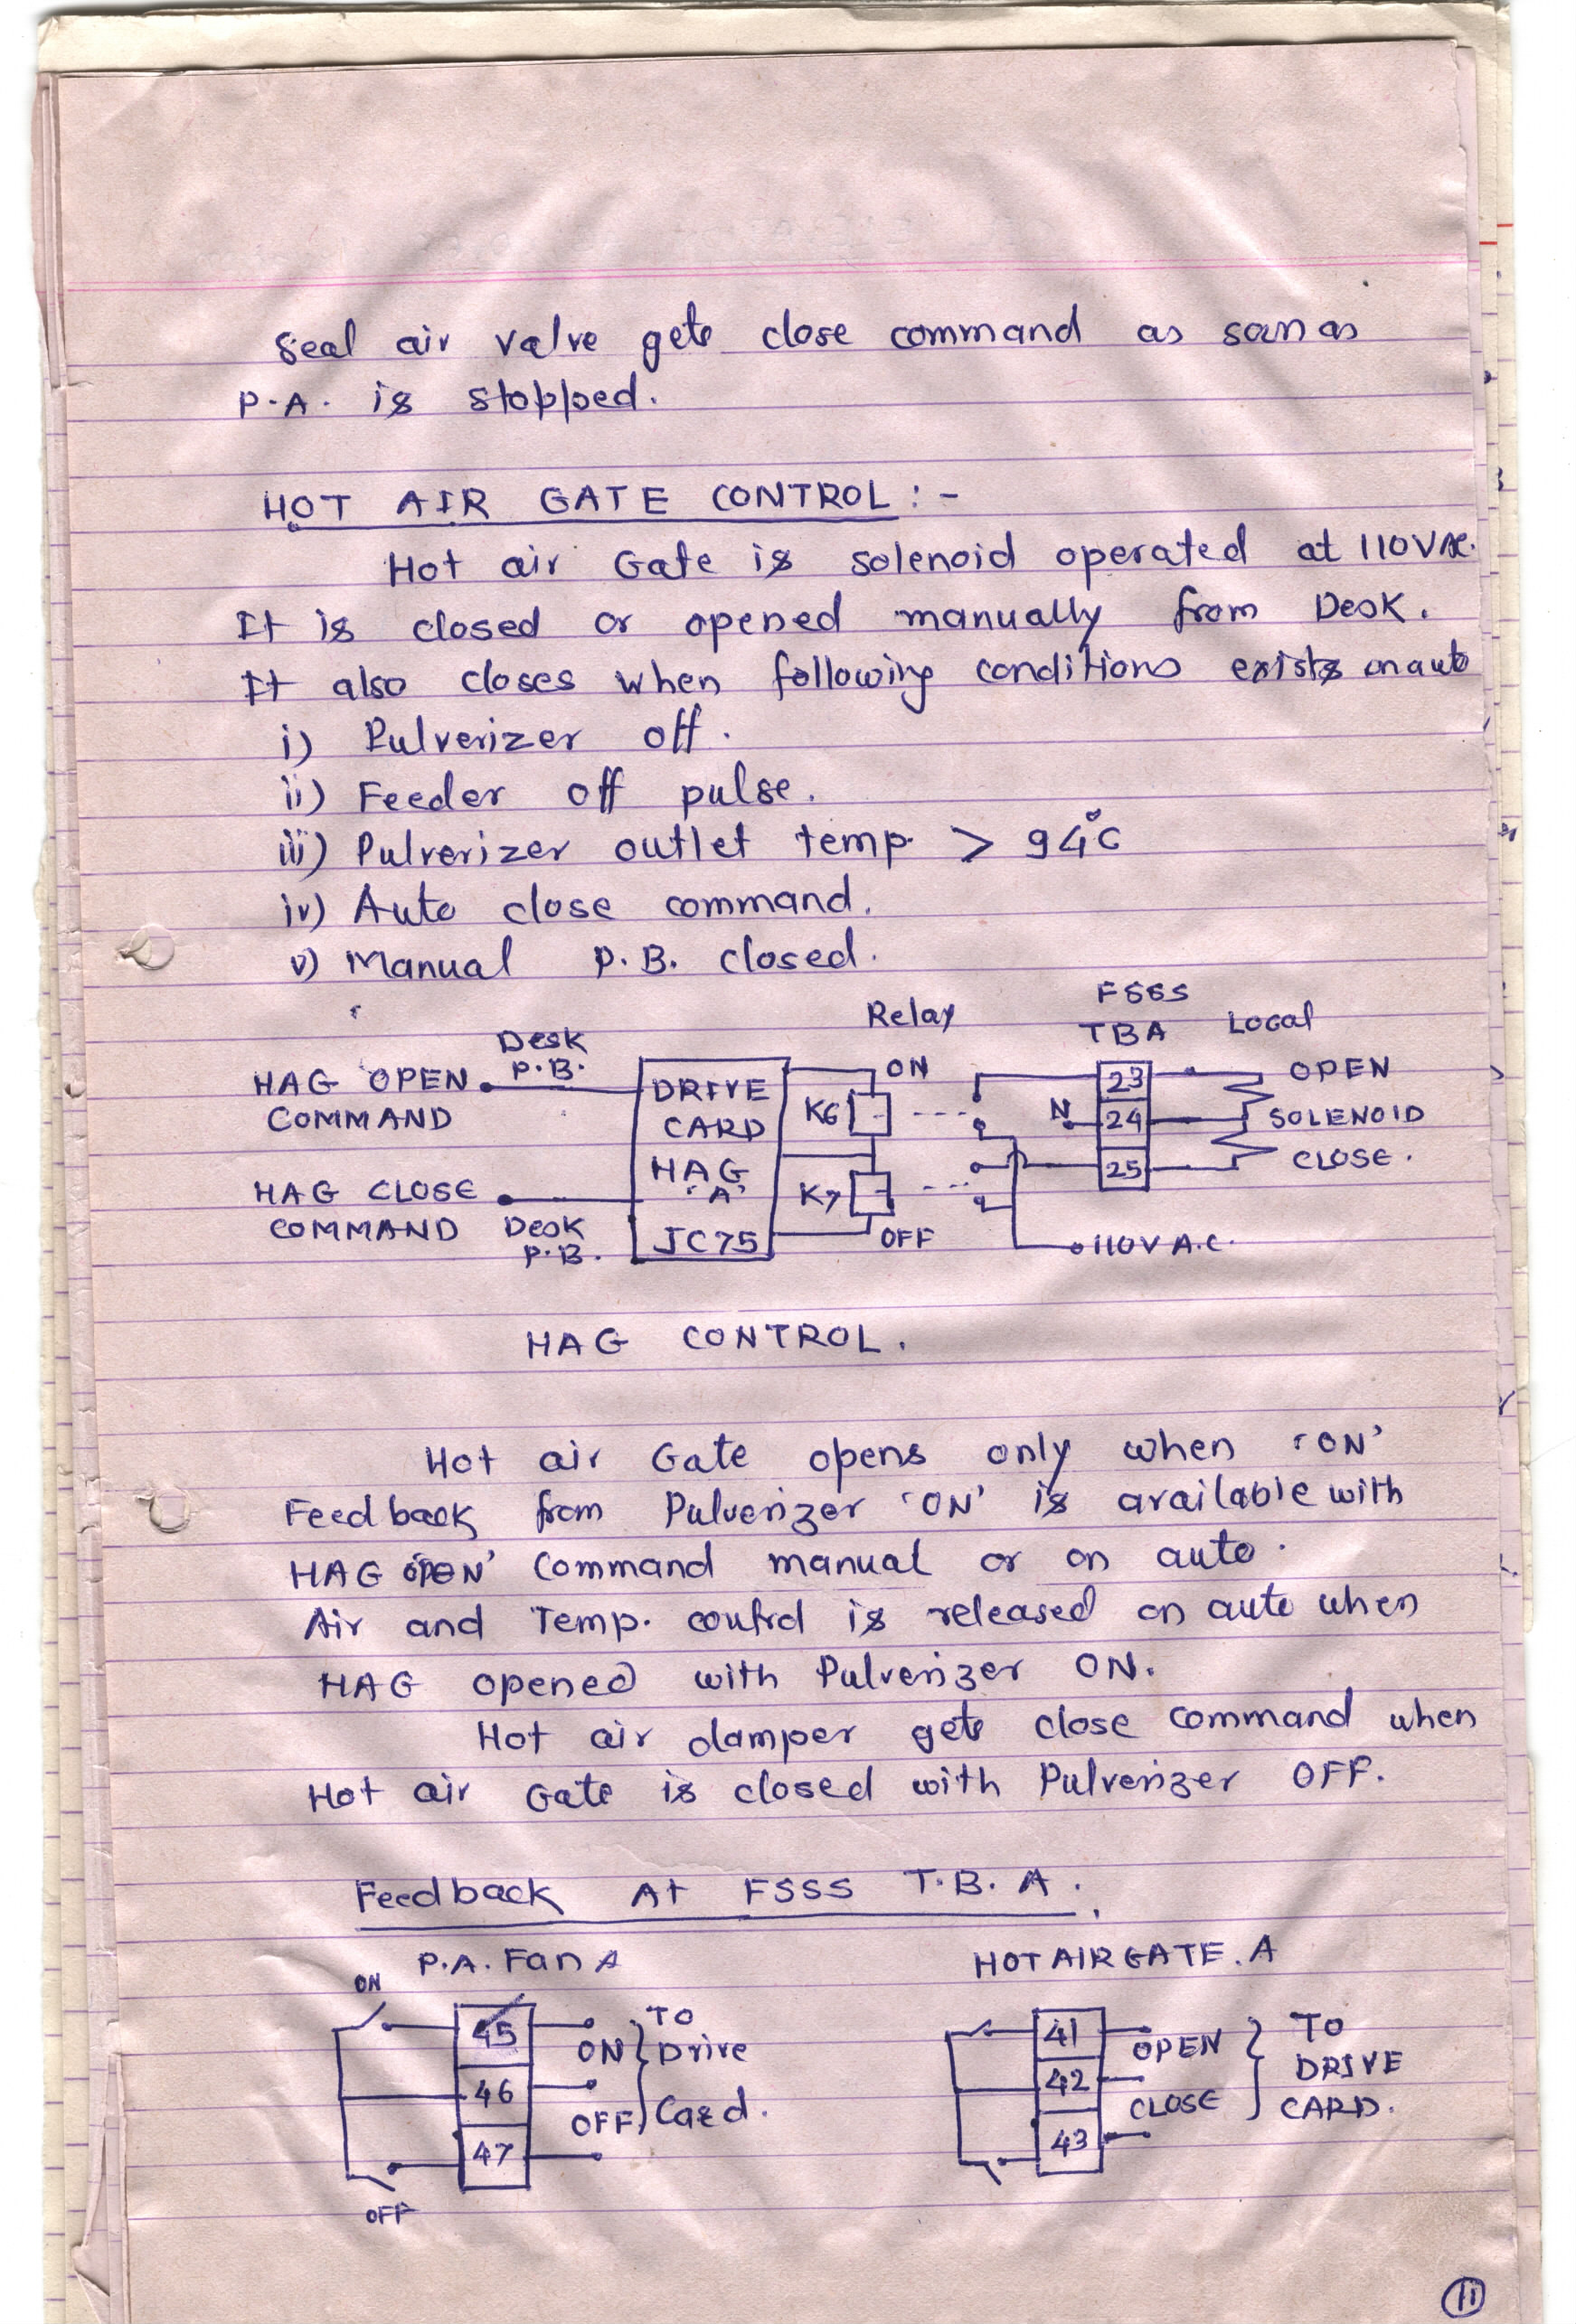 Seal air valve gets close command as soon as
P.A. is stopped.
HOT AIR GATE CONTROL :-
Hot air Gate is solenoid operated at 110VAC.
It is closed or opened manually from Desk.
It also closes when following conditions exists on auto
i) Pulverizer off.
ii) Feeder off pulse.
iii) Pulverizer outlet temp. > 94°C
iv) Auto close command.
v) Manual P.B. closed.
Relay FSSS TBA Local
HAG OPEN COMMAND
Desk P.B.
DRIVE
CARD
HAG
'A'
JC75
ON
K6
K7
OFF
HAG CLOSE COMMAND
Desk P.B.
23
N 24
25
OPEN
SOLENOID
CLOSE.
110V A.C.
HAG CONTROL.
Hot air Gate opens only when 'ON'
Feedback from Pulverizer 'ON' is available with
HAG 'OPEN' Command manual or on auto.
Air and Temp. control is released on auto when
HAG opened with Pulverizer ON.
Hot air damper gets close command when
Hot air Gate is closed with Pulverizer OFF.
Feedback At FSSS T.B.A.
P.A. Fan A
ON
45
46
47
OFF
ON
OFF
TO
Drive
Card.
HOT AIR GATE. A
41
42
43
OPEN
CLOSE
TO
DRIVE
CARD.
11